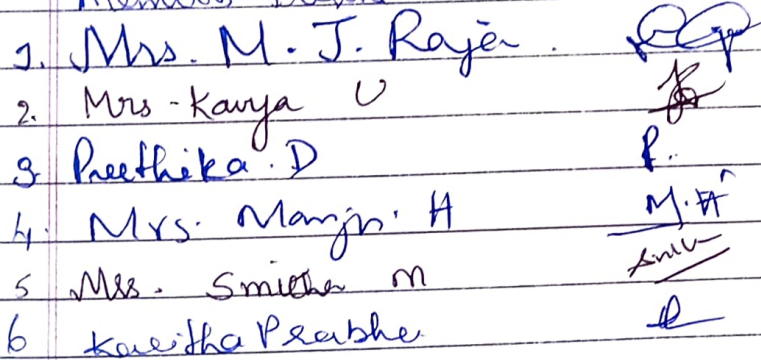 1. Mrs. M. J. Rajer.
2. Mrs - Kavya U
3. Preethika. D P.
4. Mrs. Manju. H M.H
5 Mrs. Smitha M
6 Kavitha Prabhu